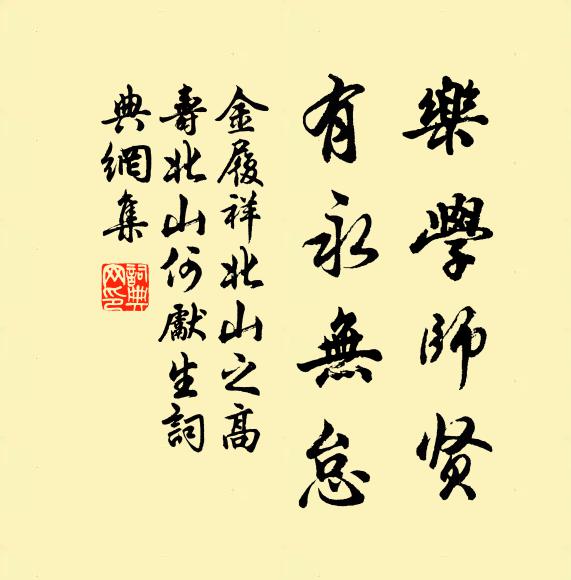 樂學師贤
有永無怠
金履祥北山之高
壽北山何獻生詞
典網集
詞典网印